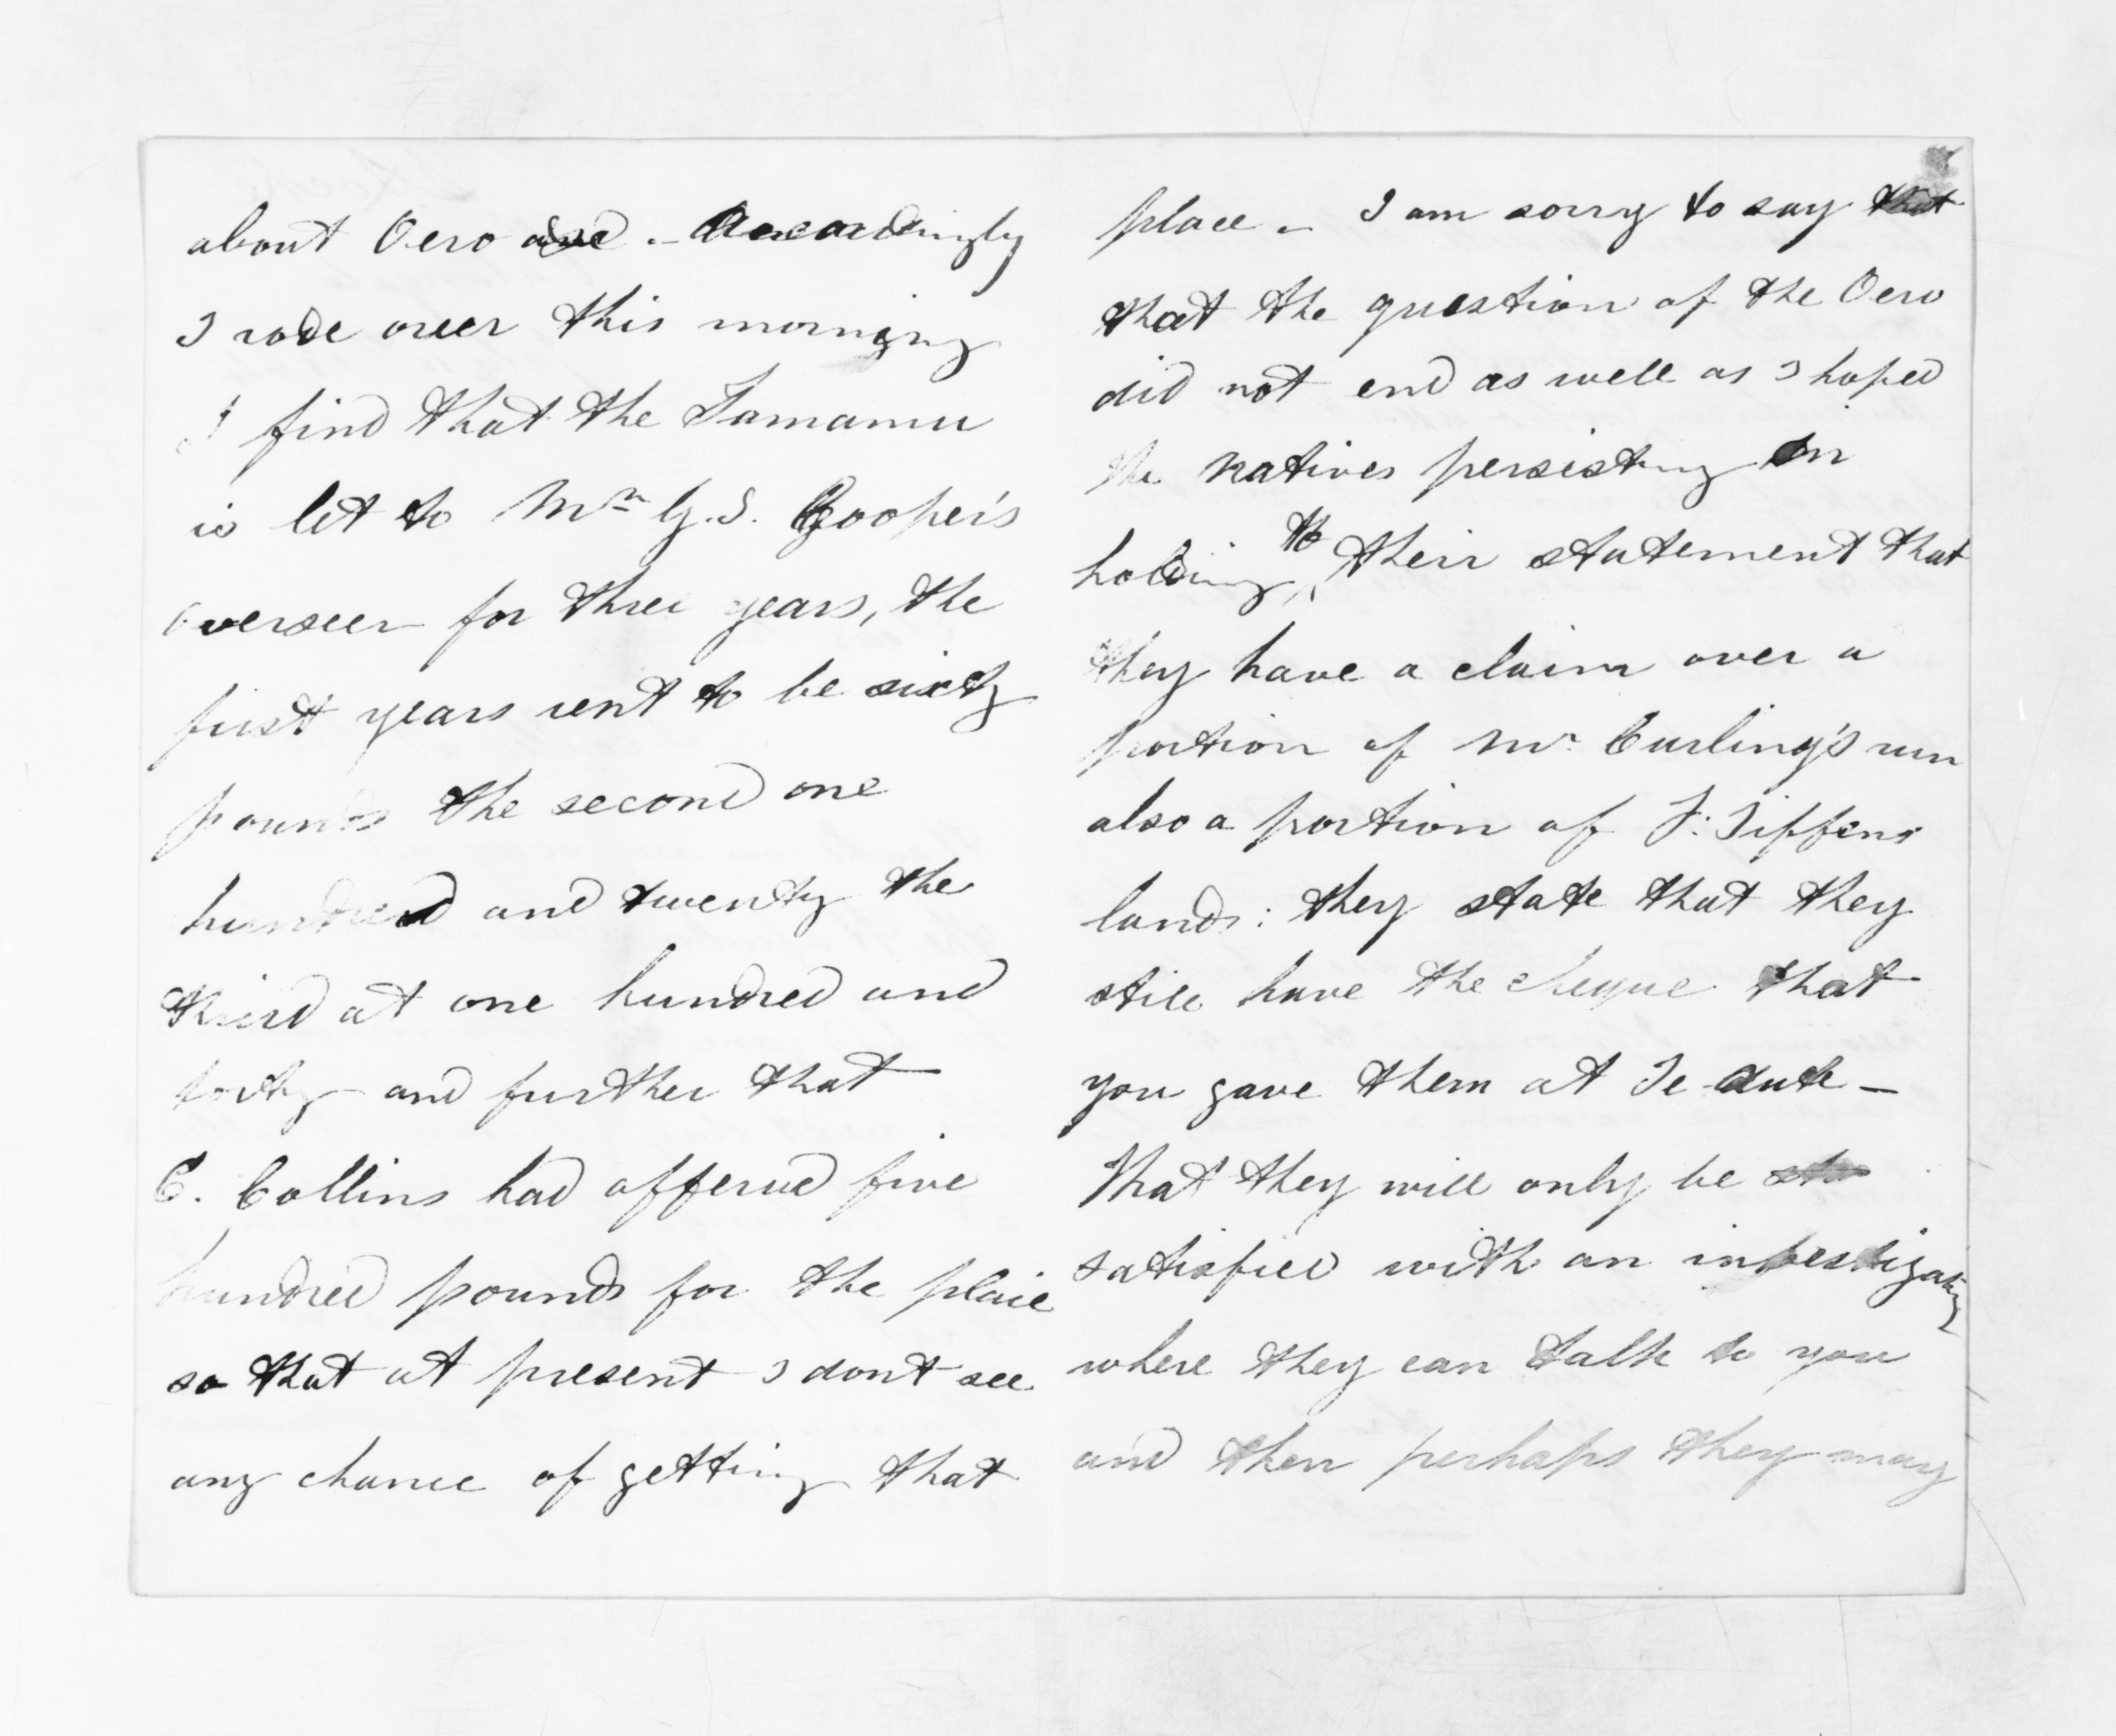 about Oero and. - Accordingly
I rode over this morning
I find that the Tamamu
is let to Mr G. S. Cooper's
overseer for three years, the
first years rent to be sixty
pounds the second one
hundred and twenty the
third at one hundred and
forty and further that
C. Collins had offered five
hundred pounds for the place
so that at present I dont see
any chance of getting that
place - I am sorry to say that
that the question of the Oero
did not end as well as I hoped
the natives persisting in
holding to their statement that
they have a claim over a
portion of Mr Curling's run
also a portion of F: Tiffens
lands: they state that they
still have the cheque that
you gave them at Te Aute -
That they will only be
satisfied with an investigation
where they can talk to you
and then perhaps they may